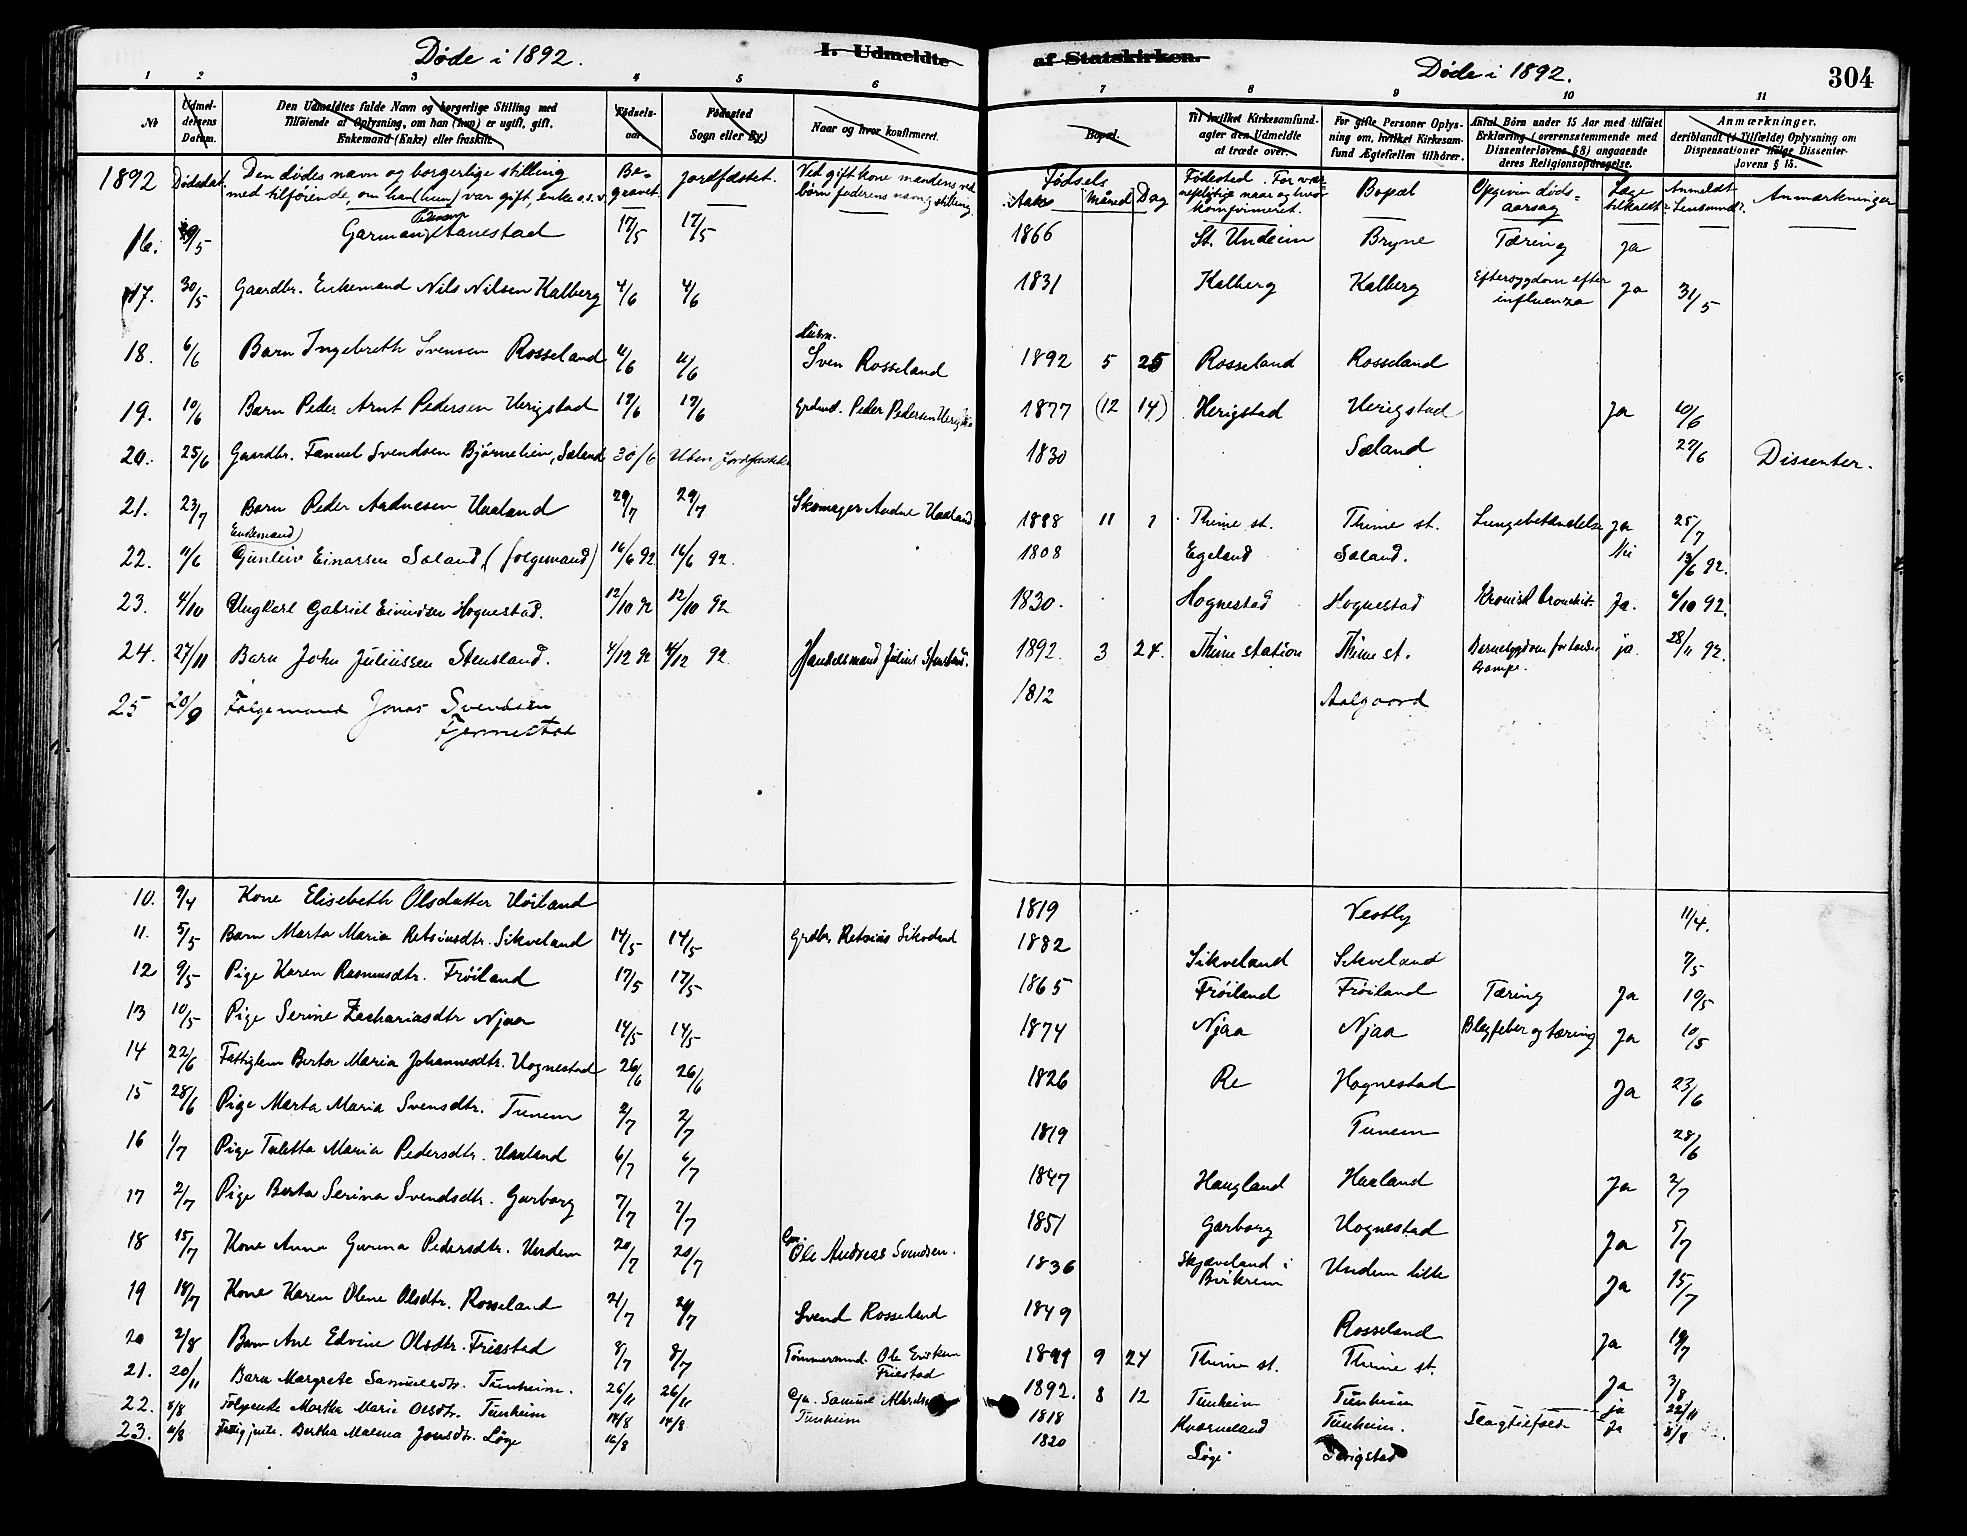 Døde i 1892.
I. Udmeldte
af Statskirken.
Døde i 1892.
304
1 2 3 4 5 6 7 8 9 10 11
No
Udmel-
delsens
Datum.
Den Udmeldtes fulde Navn og borgerlige Stilling med
Tilføiende af Oplysning, om han (hun) er ugift, gift,
Enkemand (Enke) eller fraskilt.
Fødsels-
aar
Fødested
Sogn eller By)
Naar og hvor konfirmeret.
Bopæl.
Til hvilket Kirkesamfund-
agter den Udmeldte
at træde over.
For gifte Personer Oplys-
ning om, hvilket Kirkesam-
fund Ægtefællen tilhører.
Antal Börn under 15 Aar med tilföiet
Erklæring (overensstemmende med
Dissenterlovens § 8) angaaende
deres Religionsopdragelse.
Anmærkninger,
deriblandt (i Tilfælde) Oplysning om
Dispensationer ifølge Dissenter-
lovens § 15.
1892 Dødsdat. Den dødes navn og borgerlige stilling
med tilføiende, om han (hun) var gift, enke o.s.v.
Be-
gravet. Jordfæstet. Ved gift kone mandens nv
börn faderens navn og stilling.
Fødsels
Aar Måned Dag
Fødested. For vær-
nepligtige naar og hvor
konfirmeret.
Bopæl
Opgiven døds-
aarsag
Læge
tilkaldt?
Anmeldt
Lensmd?
Anmærkninger
16. /5 Garmann Hanestad 17/5 17/5 1866 St. Undeim Bryne Tæring ja
17. 30/5 Gaardbr. Enkemand Nils Nilsen Kalberg 4/6 4/6 1831 Kalberg Kalberg Eftersygdom efter
influenza ja 31/5
18. 6/6 Barn Ingebreth Svensen Rosseland /6 /6 Sven Rosseland 1892 5 25 Rosseland Rosseland
19. 10/6 Barn Peder Arnt Pedersen Herigstad 19/6 19/6 Grdmd. Peder Pedersen 1877 (12 14) Herigstad Herigstad Ja 10/6
20. 25/6 Gaardbr. Fannel Svendsen Bjørnelien, Sæland 30/6 Uden Jordfæstelse 1830 Sæland 27/6 Dissenter.
21. 23/7 Barn Peder Aadnesen Haaland 29/7 29/7 Skomager Aadne Haaland 1888 11 1 Thime st. Thime st. Lungebetændelse ja 25/7
Enkemand)
22. /6 Gunleiv Einarsen Sæland (folgemand) 16/6 92 16/6 92. 1808 Egeland Sæland. Nei 13/6 92.
23. 4/10 Ungkarl Gabriel Eivindsen Hognestad. 12/10 92 12/10 92 1830. Hognestad Hognestad Kronisk bronchit. Ja. 6/10 92.
24. 27/11 Barn John Juliussen Stensland. 4/12 92 4/12 92. Handelsmand Julius Stensland. 1892. 3 24. Thime station Thime st. ja 28/11 92.
Krampe.
25 20/9 Følgemand Jonas Svendsen 1812 Aalgaard
Fjermestad
10. 9/4 Kone Elisebeth Olsdatter Höiland 1819 Vestly 11/4.
11. 5/5 Barn Marta Maria Retsiusdtr. Sikveland 14/5 14/5 Grdbr. Retsius Sikveland 1882 Sikveland Sikveland 7/5
12 9/5 Pige Karen Rasmusdtr. Fröiland 17/5 17/5 1865 Fröiland Fröiland Tæring ja 10/5
13 10/5 Pige Serine Zachariasdtr Njaa 14/5 14/5 1874 Njaa Njaa Blegfeber og tæring Ja 10/5
14 22/6 Fattiglem Berta Maria Johannesdtr. Hognestad 26/6 26/6 1826 Re Hognestad Ja 23/6
15 28/6 Pige Marta Maria Svensdtr. Tunem 2/7 2/7 1819 Tunem 28/6
16 1/7 Pige Taletta Maria Pedersdtr. Haaland 6/7 6/7 1847 Haugland Haaland Ja 2/7
17 2/7 Pige Berta Serina Svendsdtr. Garborg 7/7 7/7 1851 Garborg Hognestad Ja 5/7
18 15/7 Kone Anna Gurina Pedersdtr. Undem 20/7 20/7 Ole Andreas Svendsen. 1836 Skjæveland i
Birkrem Undem lille Ja 15/7
19 18/7 Kone Karen Olene Olsdtr. Rosseland 21/7 21/7 Svend Rosseland 1849 Rosseland Ja 19/7
20 2/8 Barn Ane Edvine Olsdtr. Friestad 8/7 8/7 Tömmermd. Ole Eriksen
Friestad 1891 9 24 Thime st. Thime st. Ja 3/8
21. 20/11 Barn Margrete Samuelsdtr. Tunheim. 26/11 26/11 Samuel
Tunheim 1892. 8 12 Tunheim Tunheim ja 22/11
22. 8/8 Følgeenke Martha Marie Olsdtr. Tunheim 14/8 14/8 1818 Kverneland Tunheim. Slagtilfælde ja 8/8
23. /8 Bertha Malena Jonsdtr. Löge 16/8 1820 Löge